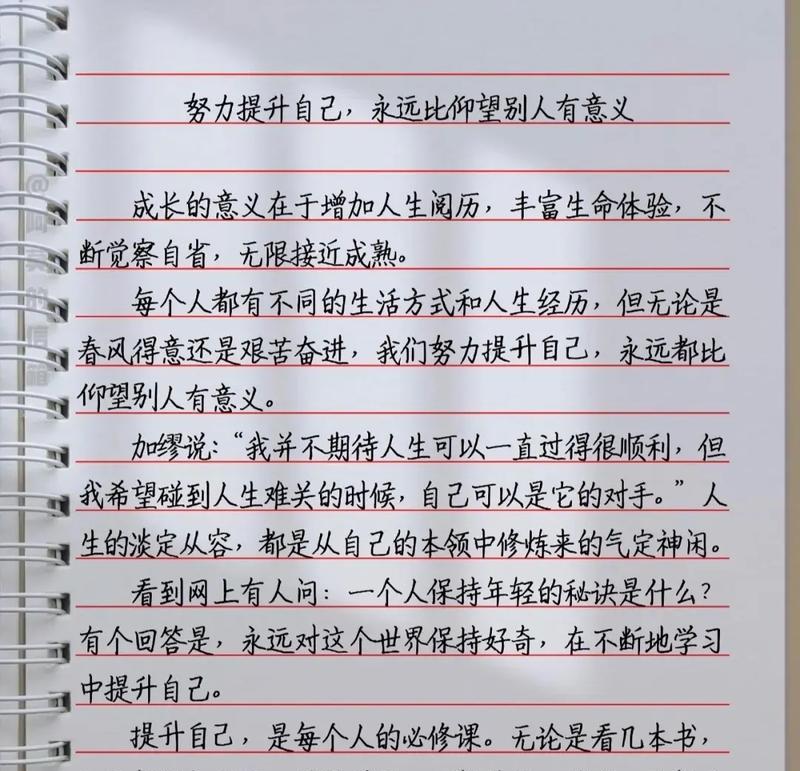 努力提升自己，永远比仰望别人有意义
成长的意义在于增加人生阅历，丰富生命体验，不
断觉察自省，无限接近成熟。
每个人都有不同的生活方式和人生经历，但无论是
春风得意还是艰苦奋进，我们努力提升自己，永远都比
仰望别人有意义。
加缪说：“我并不期待人生可以一直过得很顺利，但
我希望碰到人生难关的时候，自己可以是它的对手。”人
生的淡定从容，都是从自己的本领中修炼来的气定神闲。
看到网上有人问：一个人保持年轻的秘诀是什么？
有个回答是，永远对这个世界保持好奇，在不断地学习
中提升自己。
提升自己，是每个人的必修课。无论是看几本书，